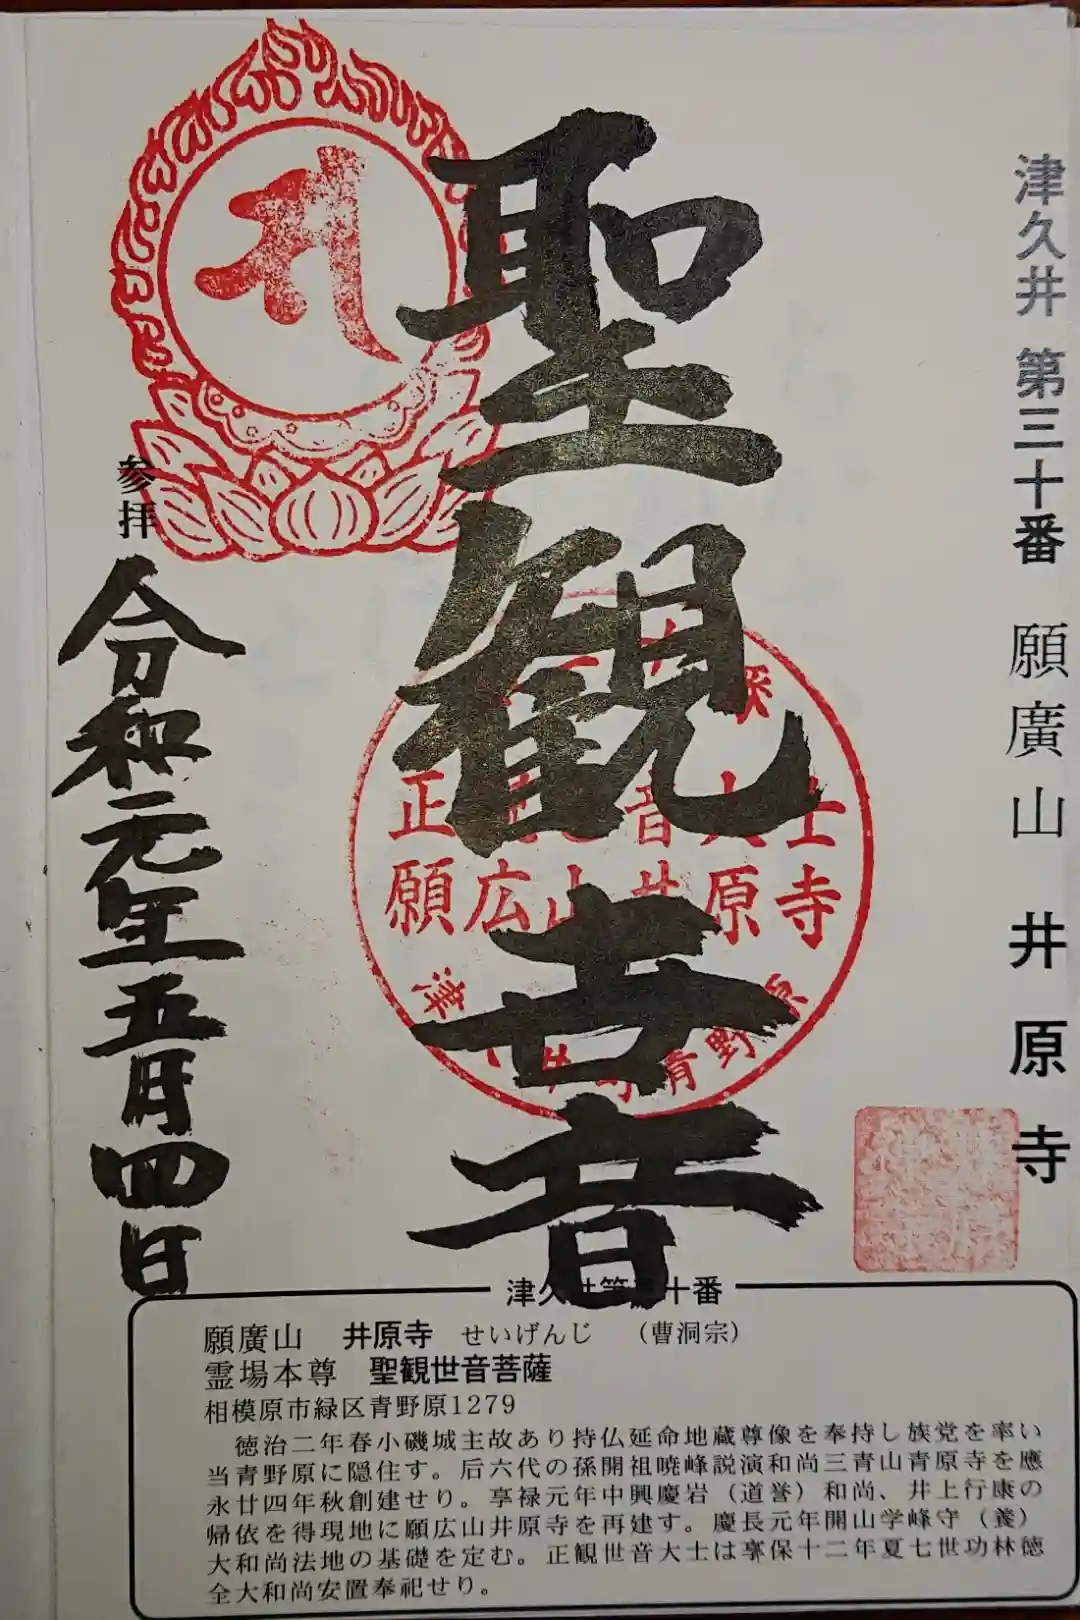 津久井 第三十番 願廣山 井原寺
聖観世音
参拝
令和元年五月四日
正 音大士
願広山井原寺
津久井町青野原
津久井第三十番
願廣山 井原寺 せいげんじ （曹洞宗）
霊場本尊 聖観世音菩薩
相模原市緑区青野原1279
徳治二年春小磯城主故あり持仏延命地蔵尊像を奉持し族党を率い
当青野原に隠住す。后六代の孫開祖暁峰説演和尚三青山青原寺を應
永廿四年秋創建せり。享禄元年中興慶岩（道誉）和尚、井上行康の
帰依を得現地に願広山井原寺を再建す。慶長元年開山学峰守（養）
大和尚法地の基礎を定む。正観世音大士は享保十二年夏七世功林徳
全大和尚安置奉祀せり。